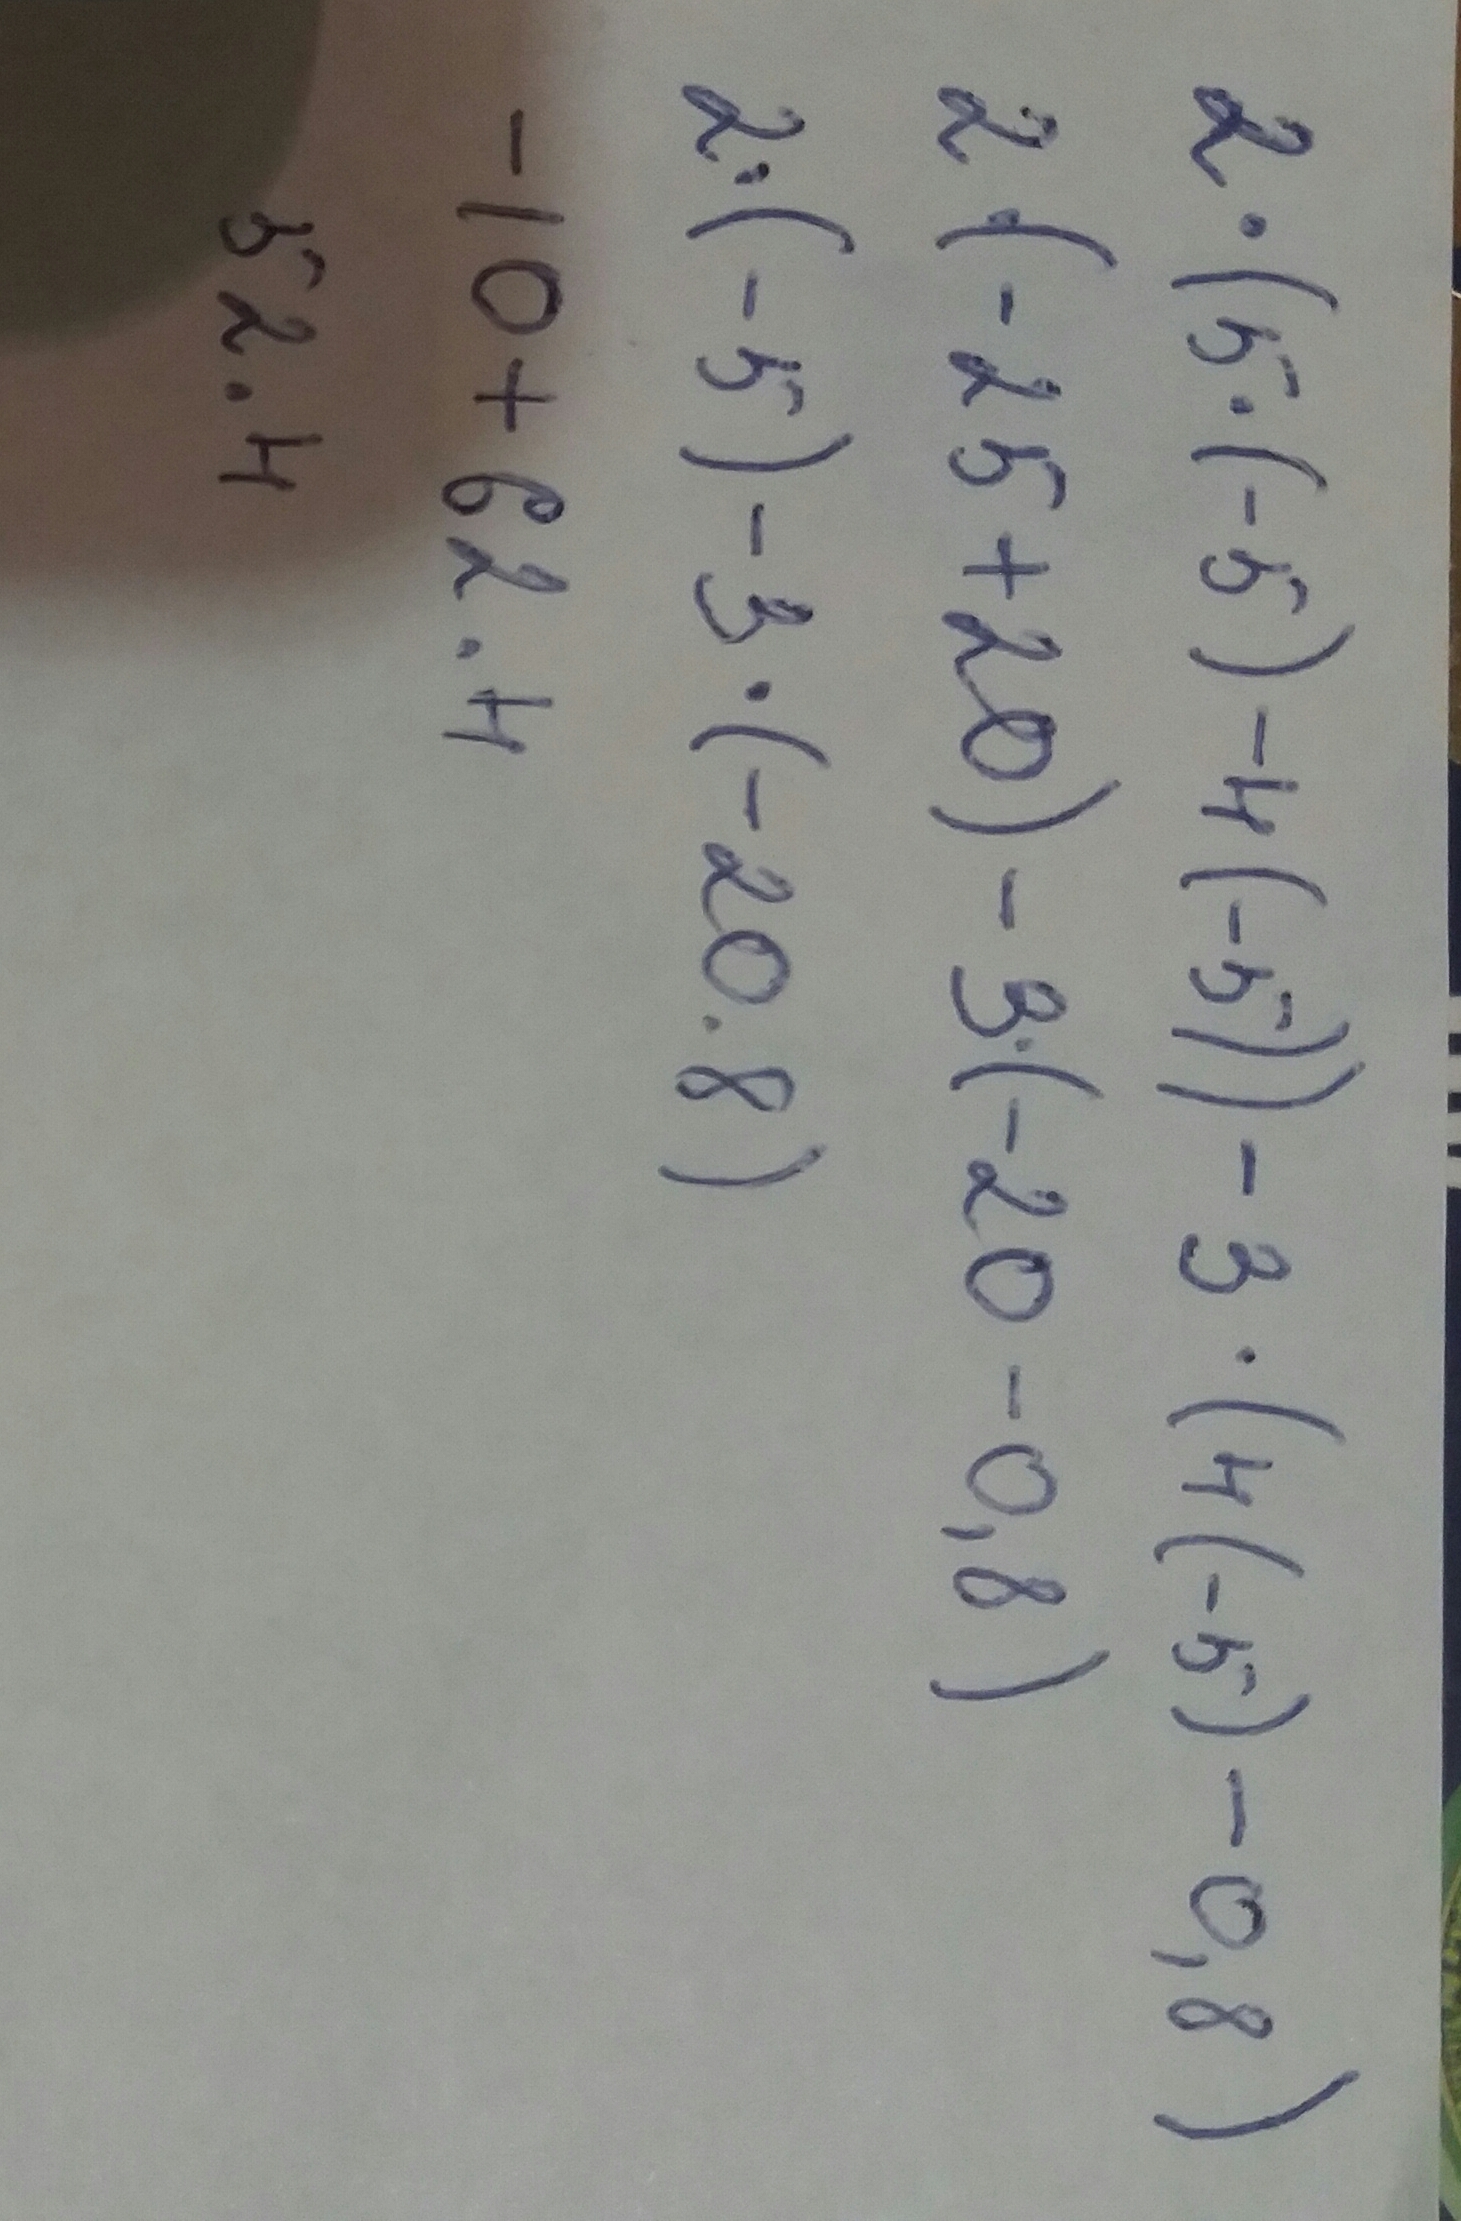 2·(5·(-5)-4(-5))-3·(4(-5)-0,8)
2·(-25+20)-3·(-20-0,8)
2·(-5)-3·(-20.8)
-10+62.4
52.4